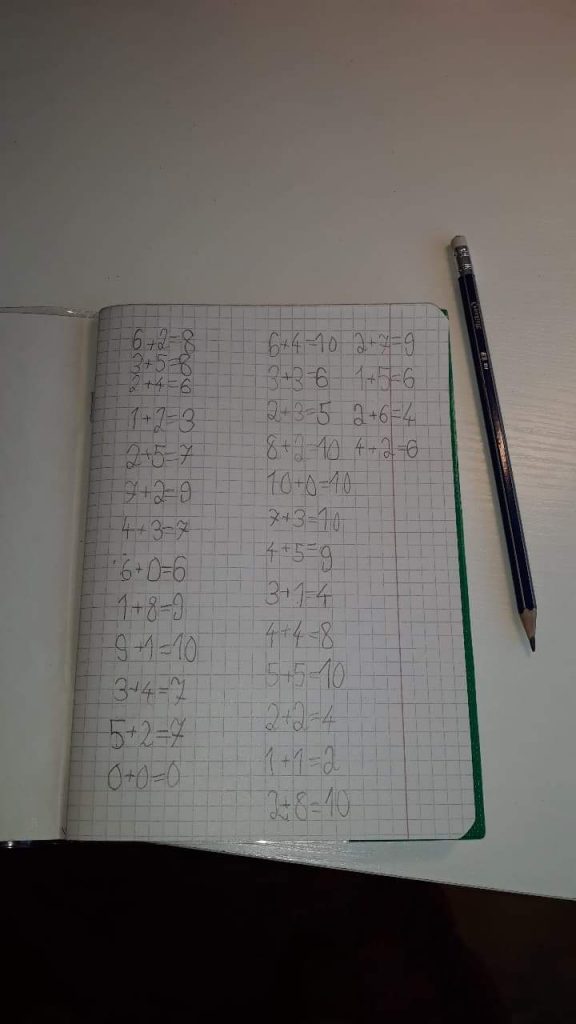 6+2=8
3+5=8
2+4=6
1+2=3
2+5=7
7+2=9
4+3=7
6+0=6
1+8=9
9+1=10
3+4=7
5+2=7
0+0=0
6+4=10
3+3=6
2+3=5
8+2=10
10+0=10
7+3=10
4+5=9
3+1=4
4+4=8
5+5=10
2+2=4
1+1=2
2+8=10
2+7=9
1+5=6
2+6=4
4+2=6